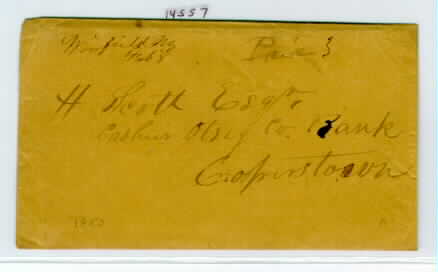 14557
Winfield Ny
Feb 8
Paid 3
H Scott Esqr.
Cashier Otsego Co. Bank
Cooperstown
1850